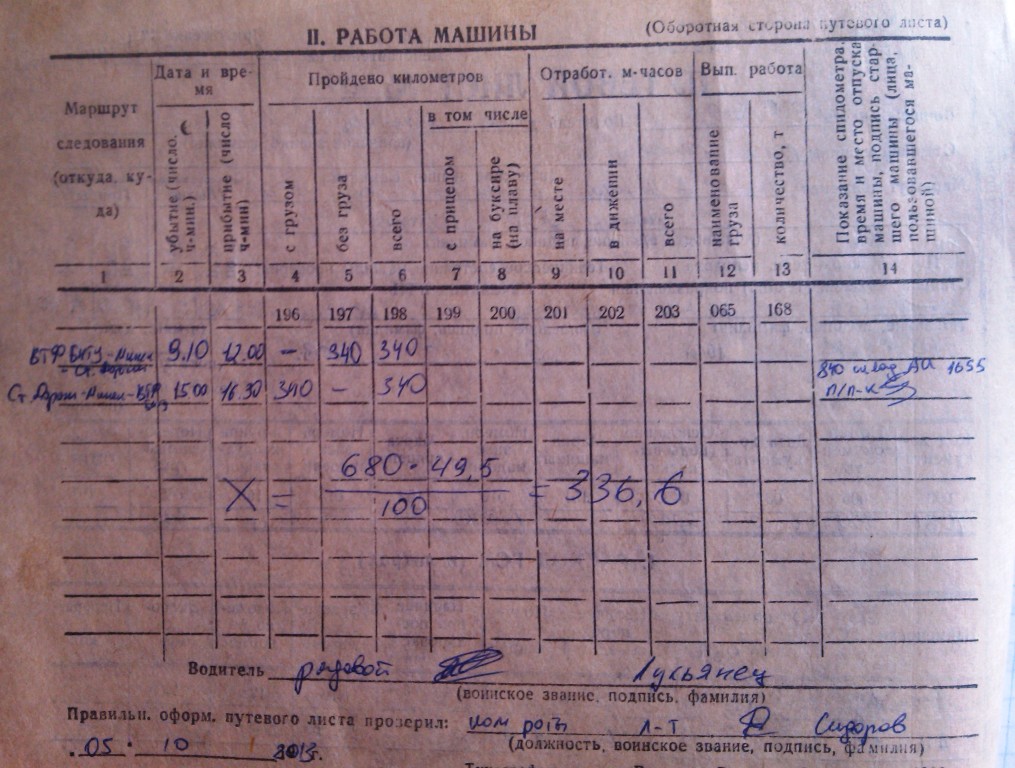 II. РАБОТА МАШИНЫ
(Оборотная сторона путевого листа)
Маршрут следования (откуда, куда)
Дата и время
убытие (число, ч-мин.)
прибытие (число ч-мин)
Пройдено километров
с грузом
без груза
всего
в том числе
с прицепом
на буксире (на плаву)
Отработ. м-часов
на месте
в движении
всего
Вып. работа
наименование груза
количество, т
Показание спидометра, время и место отпуска машины, подпись старшего машины (лица, пользовавшегося машиной)
1 2 3 4 5 6 7 8 9 10 11 12 13 14
196 197 198 199 200 201 202 203 065 168
ВТФ 9.10 12.00 – 340 340
Ст. 15.00 16.30 340 – 340
1655
П/П-К
X = 680 · 49,5 / 100 = 336,6
Водитель рядовой Лукьянец
(воинское звание, подпись, фамилия)
Правильн. оформ. путевого листа проверил: ком роты л-т Сидоров
05. 10 2013г. (должность, воинское звание, подпись, фамилия)